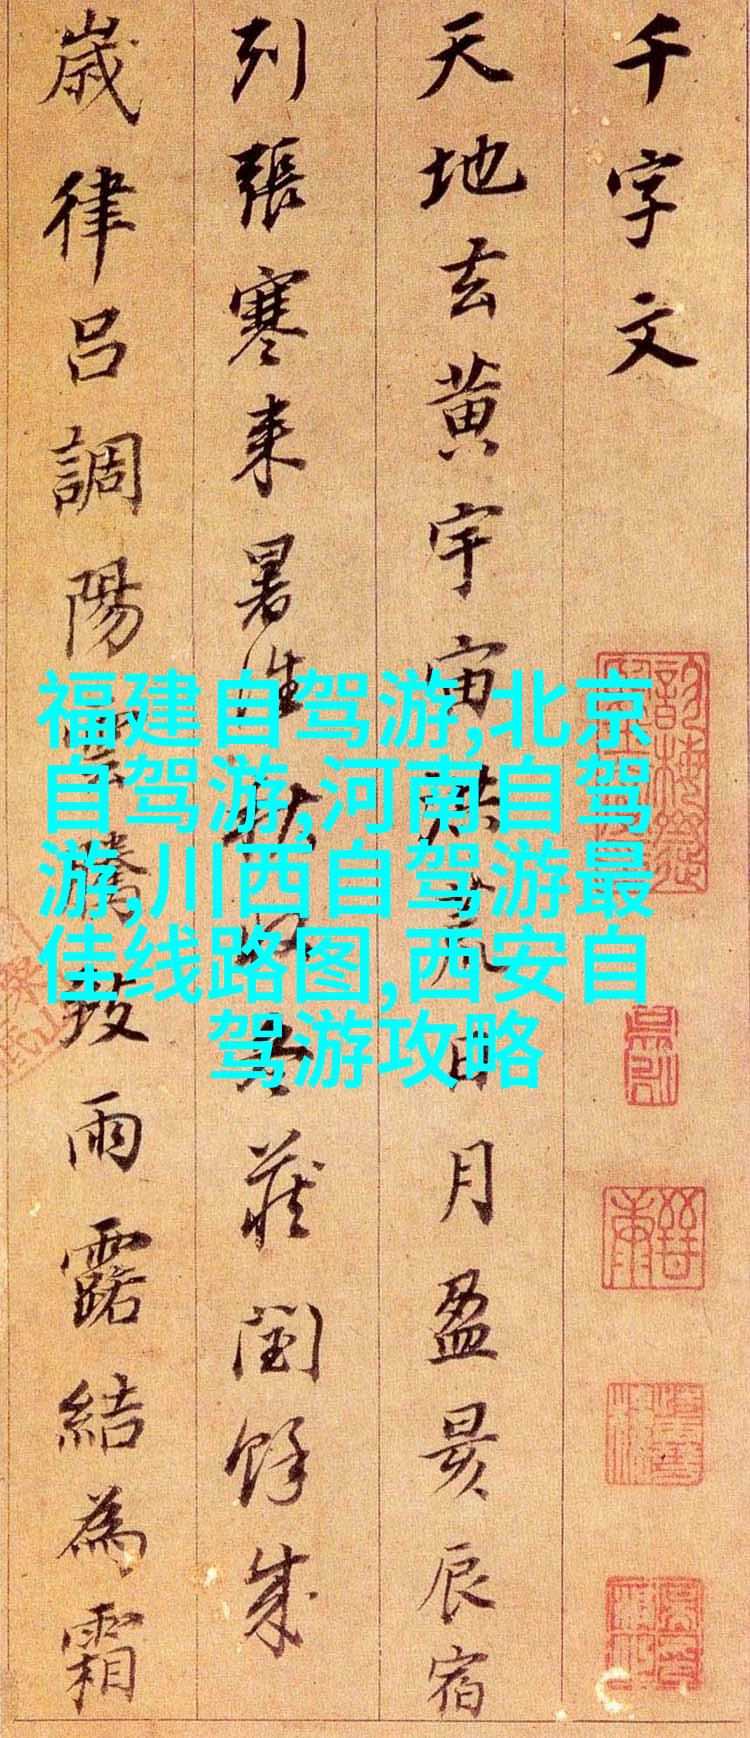 千字文
天地玄黃宇宙洪荒日月盈昃辰宿
列張寒来暑往秋收冬蔵閏餘成
歳律吕調陽雲騰致雨露結為霜
福建自驾游,北京
自驾游,河南自驾
游,川西自驾游最
佳线路图,西安自
驾游攻略